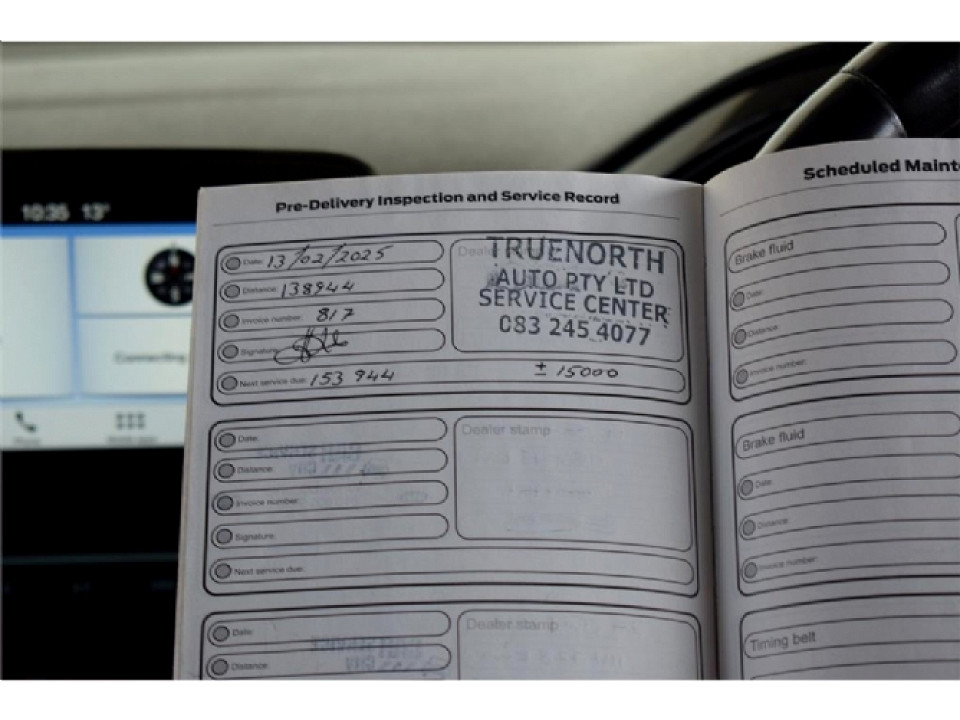 10:35 13°
Connecting
Phone
Pre-Delivery Inspection and Service Record
Date: 13/02/2025
Distance: 138944
Invoice number: 817
Signature:
Next service due: 153 944 ± 15000
Dealer
TRUENORTH
AUTO PTY LTD
SERVICE CENTER
083 245 4077
Date:
Distance:
Invoice number:
Signature:
Next service due:
Dealer stamp
Date:
Distance:
Dealer stamp
Scheduled Maint
Brake fluid
Date:
Distance:
Invoice number:
Brake fluid
Date:
Distance:
Invoice number:
Timing belt